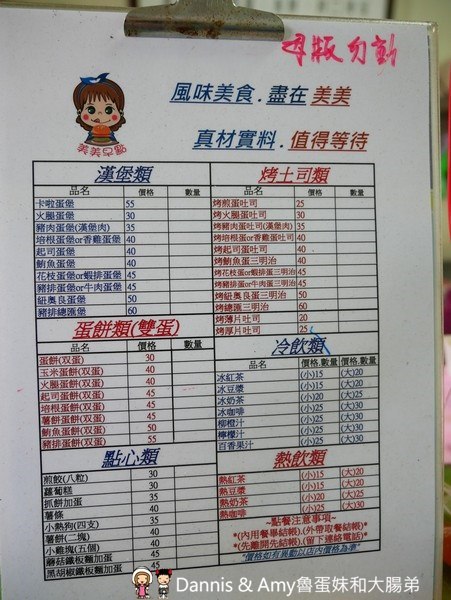 母版勿動
美美早點
風味美食.盡在美美
真材實料.值得等待
漢堡類
品名 價格 數量
卡啦蛋堡 55
火腿蛋堡 30
豬肉蛋堡(漢堡肉) 35
培根蛋堡or香雞蛋堡 40
起司蛋堡 40
鮪魚蛋堡 40
花枝蛋堡or蝦排蛋堡 45
豬排蛋堡or牛肉蛋堡 45
紐奧良蛋堡 50
豬排總匯堡 60
烤土司類
品名 價格 數量
烤煎蛋吐司 25
烤火腿蛋吐司 30
烤豬肉蛋吐司(漢堡肉) 35
培根蛋or香雞蛋吐司 40
烤起司蛋吐司 40
烤鮪魚蛋三明治 40
烤花枝蛋or蝦排蛋三明治 45
烤豬排蛋or牛肉蛋三明治 45
烤紐奧良蛋三明治 50
烤總匯三明治 60
烤薄片吐司 20
烤厚片吐司 25
蛋餅類(雙蛋)
品名 價格 數量
蛋餅(双蛋) 30
玉米蛋餅(双蛋) 40
火腿蛋餅(双蛋) 40
起司蛋餅(双蛋) 45
培根蛋餅(双蛋) 45
薯餅蛋餅(双蛋) 45
鮪魚蛋餅(双蛋) 50
豬排蛋餅(双蛋) 55
冷飲類
品名 價格.數量 價格.數量
冰紅茶 (小)15 (大)20
冰豆漿 (小)15 (大)20
冰奶茶 (小)20 (大)25
冰咖啡 (小)25 (大)30
柳橙汁 (小)25 (大)30
檸檬汁 (小)25 (大)30
百香果汁 (小)25 (大)30
點心類
品名 價格 數量
煎餃(八粒) 30
蘿蔔糕 30
抓餅加蛋 35
薯條 35
小熱狗(四支) 35
薯餅(二塊) 40
小雞塊(五個) 40
蘑菇鐵板麵加蛋 45
黑胡椒鐵板麵加蛋 45
熱飲類
熱紅茶 (小)15 (大)20
熱豆漿 (小)15 (大)20
熱奶茶 (小)20 (大)25
熱咖啡 (小)25 (大)30
~點餐注意事項~
*(內用餐畢結帳).(外帶取餐結帳)*
*(先離開先結帳).(留下連絡電話)*
*價格如有異動以店內價格為準*
Dannis & Amy魯蛋妹和大腸弟